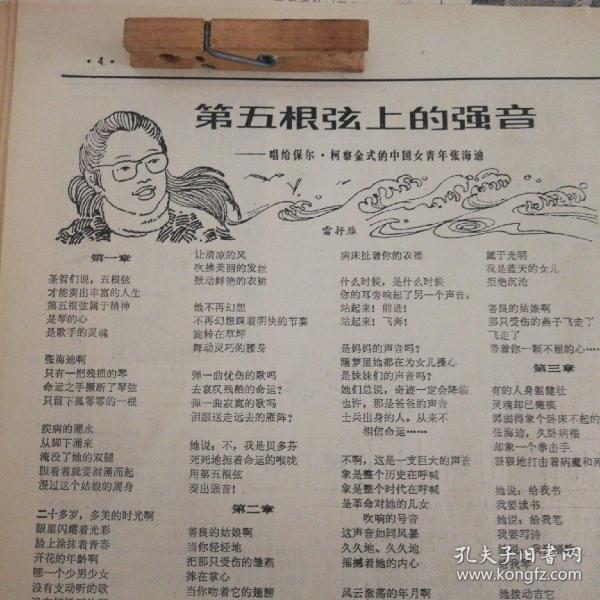 ·4·
第五根弦上的强音
——唱给保尔·柯察金式的中国女青年张海迪
雷抒雁
第一章
圣哲们说，五根弦
才能奏出丰富的人生
第五根弦属于精神
是琴的心
是歌手的灵魂
张海迪啊
只有一把残损的琴
命运之手撅断了琴弦
只留下孤零零的一根
疾病的潮水
从脚下涌来
淹没了她的双腿
眼看着就要汹涌而起
漫过这个姑娘的周身
二十多岁，多美的时光啊
眼里闪耀着光彩
脸上涂抹着青春
开花的年龄啊
哪一个少男少女
没有支动听的歌
让清凉的风
吹拂美丽的发丝
鼓动鲜艳的衣裙
她不再幻想
不再幻想踩着明快的节奏
旋转在草坪
舞动灵巧的腰身
弹一曲忧伤的歌吗
去哀叹残酷的命运？
弹一曲寂寞的歌吗
泪眼送走远去的雁阵？
她说：不，我是贝多芬
死死地扼着命运的喉咙
用第五根弦
奏出强音！
第二章
善良的姑娘啊
当你轻轻地
把那只受伤的雏燕
捧在掌心
当你吻着它的翅膀
病床扯着你的衣襟
什么时候，是什么时候
你的耳旁响起了另一个声音：
站起来！前进！
站起来！飞奔！
是妈妈的声音吗？
睡梦里她都在为女儿揪心
是妹妹们的声音吗？
她们总说，奇迹一定会降临
也许，那是爸爸的声音
士兵出身的人，从来不
相信命运……
不啊，这是一支巨大的声音
象是整个历史在呼喊
象是整个时代在呼喊
是革命对她的儿女
吹响的号音
这声音如同风暴
久久地、久久地
摇撼着她的内心
风云激荡的年月啊
属于光明
我是蓝天的女儿
拒绝沉沦
善良的姑娘啊
那只受伤的燕子飞走了
飞走了
带着你一颗不屈的心……
第三章
有的人身躯健壮
灵魂却已瘫痪
张海迪，久卧病榻
却象一个拳击手
狠狠地打击着病魔和死
她说：给我书
我要读书
她说：给我笔
我要写诗
她拨动吉它
孔夫子旧书网
www.kongfz.com